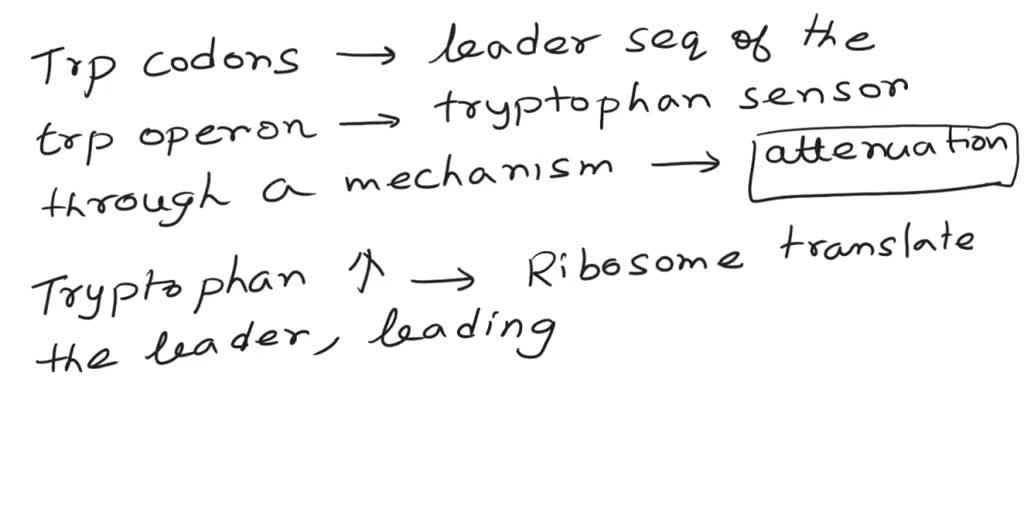 Trp codons → leader seq of the
trp operon → tryptophan sensor
through a mechanism → attenuation
Tryptophan ↑ → Ribosome translate
the leader, leading